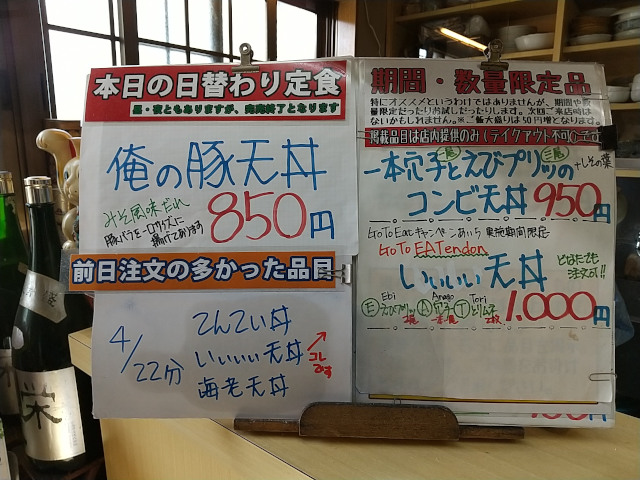 本日の日替わり定食
昼・夜ともありますが、完売終了となります
俺の豚天丼
みそ風味だれ
豚バラを一口サイズに
揚げております
850円
前日注文の多かった品目
4/22分
てんてい丼
いいいい天丼
海老天丼
コレ
です
期間・数量限定品
特にオススメというわけではありませんが、期間や数
量限定だったりお試しだったりします。次回ご来店時は
ないかもしれません。※ご飯大盛りは50円増となります。
掲載品目は店内提供のみ(テイクアウト不可)です
一本穴子とえびプリッの +しその葉
一尾
二尾
コンビ天丼 950円
GoToEatキャンペーンあいち 実施期間限定
GoTo EATendon
いいいい天丼
ひるでも
注文可!!
Ebi Anago Tori
Eえびプリッ A穴子 Tとりムネ
2尾 一本 2枚
1.000円
栄